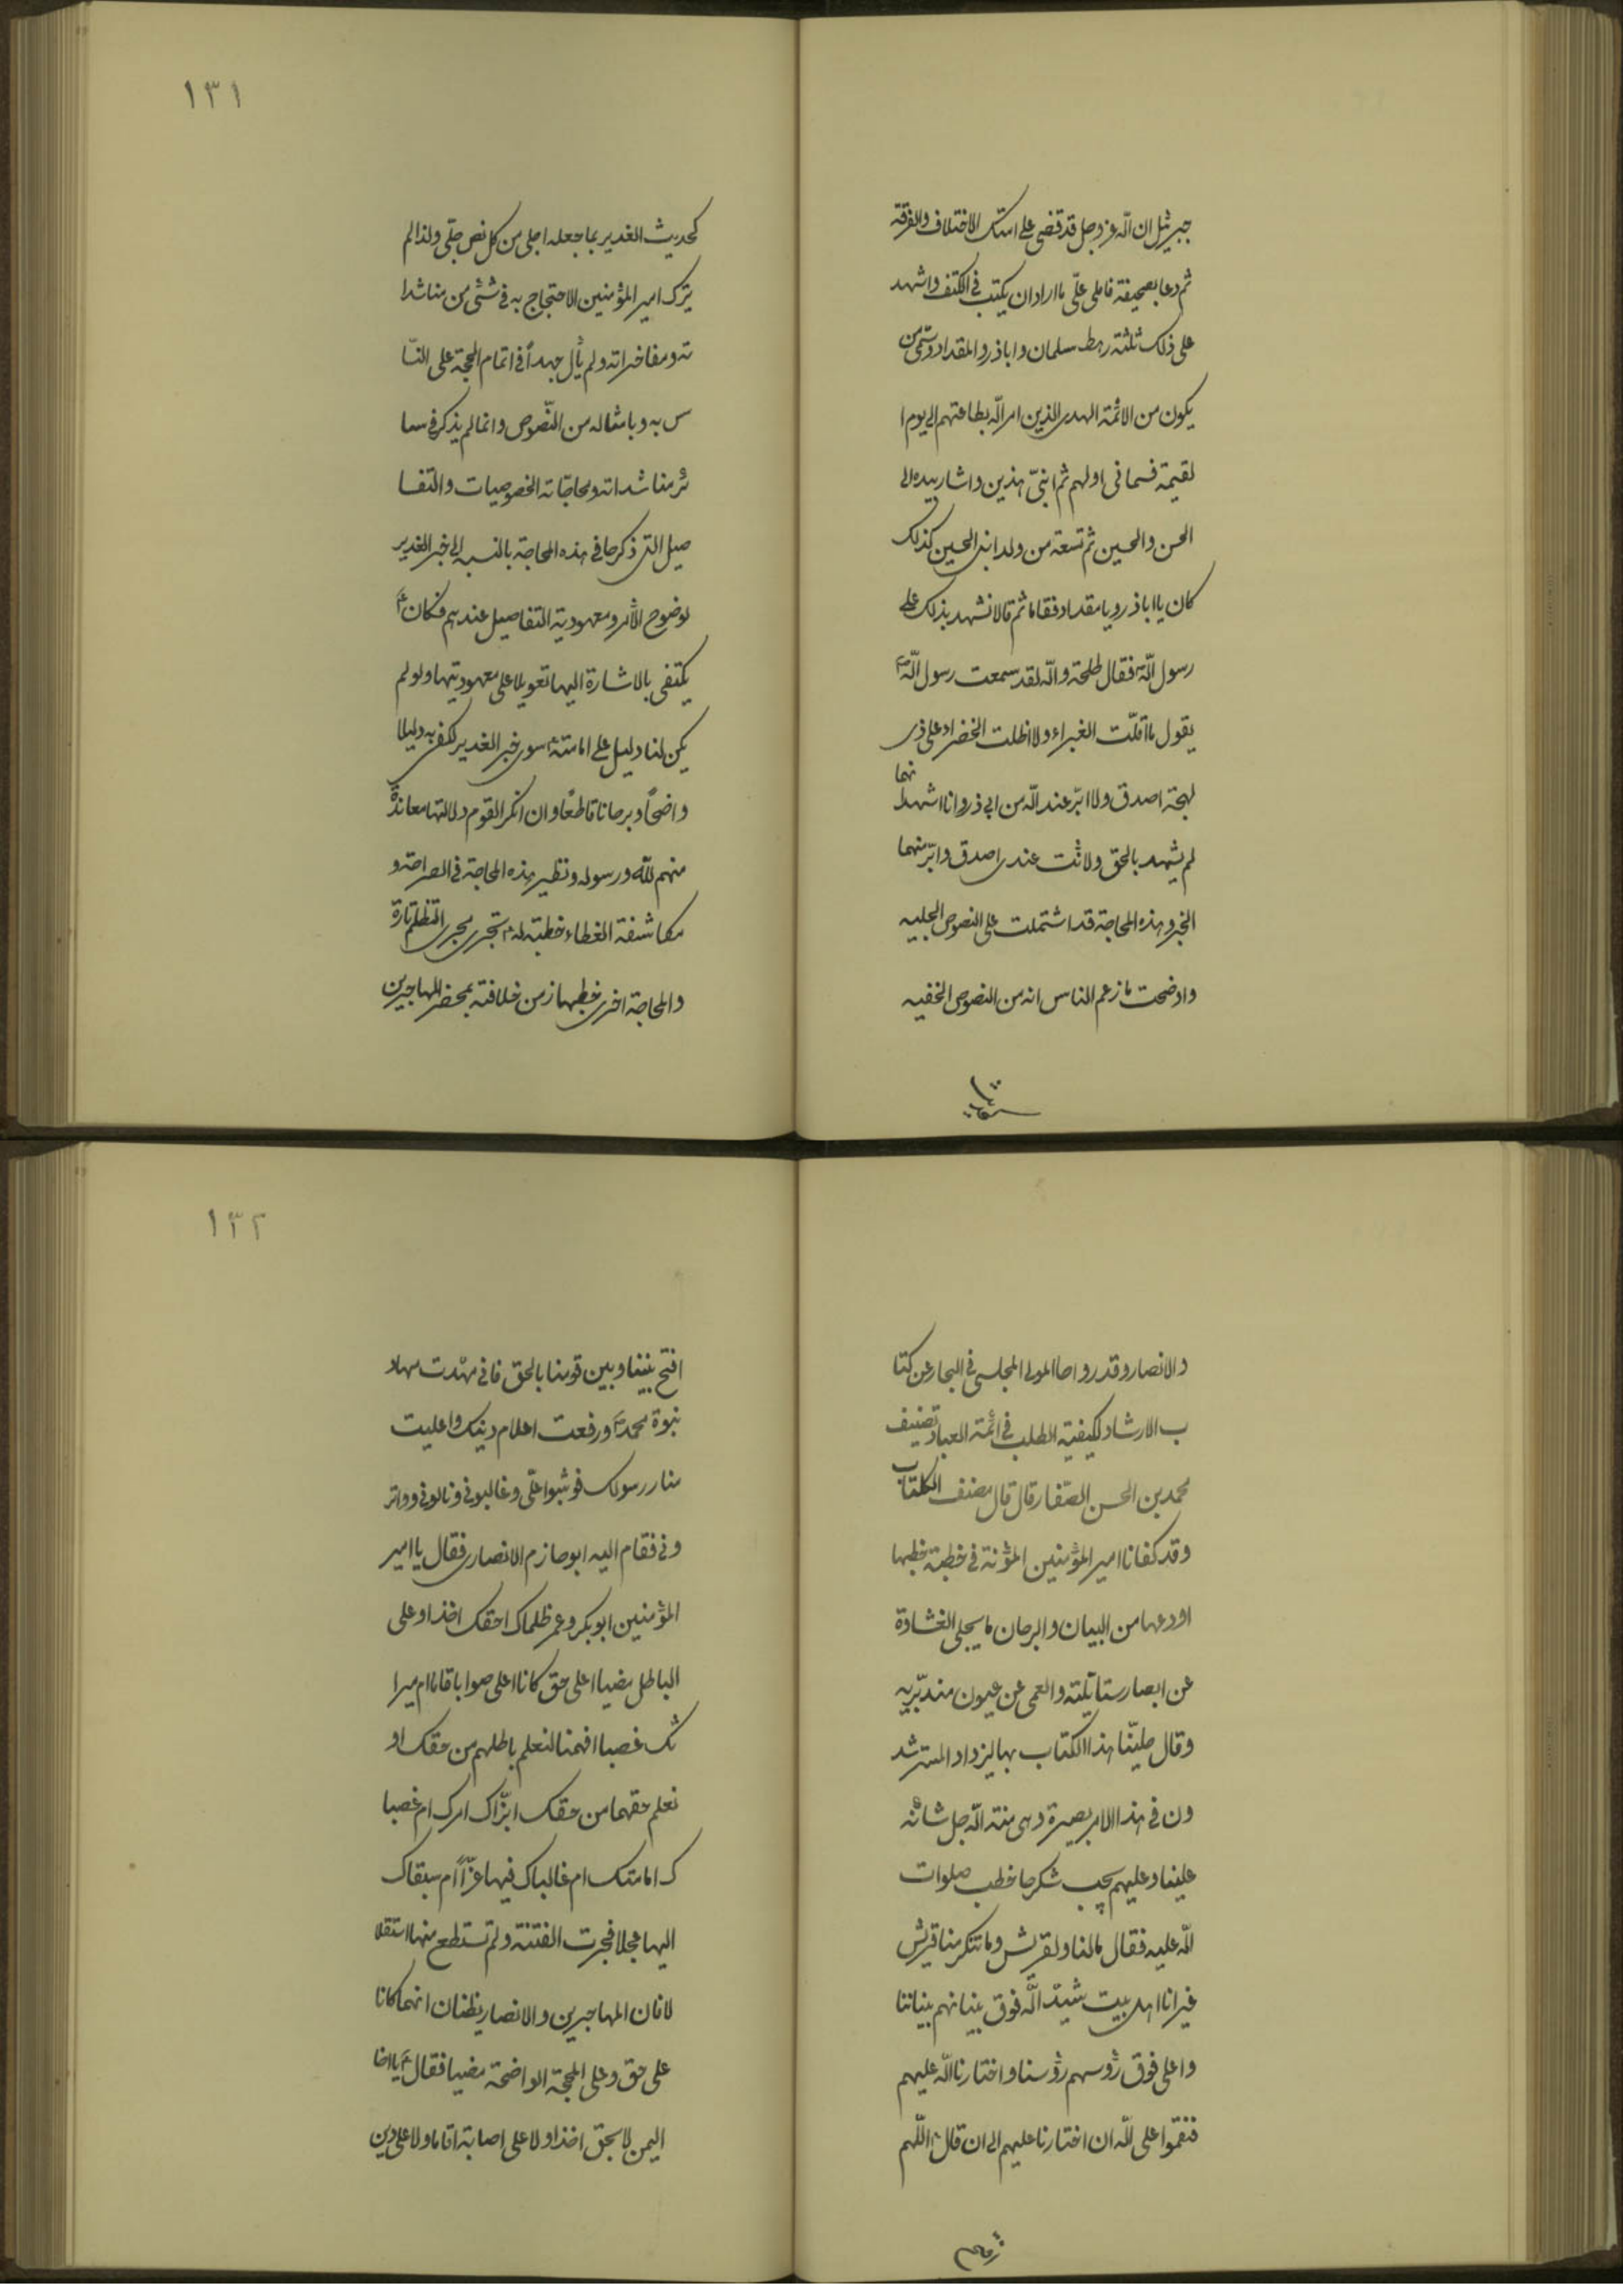 جبرئيل ان الله عز وجل قد قضى على امتك الاختلاف والفرقة
ثم دعا بصحيفة فاملى علىّ ما اراد ان يكتب فى الكتف واشهد
على ذلك ثلثة رهط سلمان واباذر والمقداد وسمى من
يكون من الائمة الهدى الذين امر الله بطاعتهم الى يوم ا
لقيمة فسمانى اولهم ثم ابنىّ هذين واشار بيده الى
الحسن والحسين ثم تسعة من ولد ابنى الحسين كذلك
كان يا اباذر ويا مقداد فقاما ثم قالا نشهد بذلك على
رسول اللهص فقال طلحة والله لقد سمعت رسول اللهص
يقول ما اقلّت الغبراء ولا اظلت الخضراء على ذى
لهجة اصدق ولا ابرّ عند الله من ابى ذر وانا اشهد انهما
لم يشهدا بالحق ولانت عندى اصدق وابرّ منهما
الخبر وهذه المحاجة قد اشتملت على النصوص الجليه
واوضحت ما زعم الناس انه من النصوص الخفيه
١٣١
كحديث الغدير بما جعله اجلى من كل نص جلّى ولذا لم
يترك امير المؤمنين الاحتجاج به فى شئى من مناشدا
ته ومفاخراته ولم يأل جهداً فى اتمام الحجة على النّا
س به وبامثاله من النّصوص وانما لم يذكر فى سا
ئر مناشداته ومحاجّاته الخصوصيات والتفا
صيل التى ذكرها فى هذه المحاجة بالنسبه الى خبر الغدير
لوضوح الأمر ومعهودية التفاصيل عندهم فكانع
يكتفى بالاشارة اليها تعويلا على معهوديتها ولو لم
يكن لنا دليل على امامتهع سوى خبر الغدير لكفى به دليلا
واضحاً وبرهانا قاطعًا وان انكر القوم دلالتها معاندة
منهم لله ورسوله ونظير هذه المحاجة فى الصراحة و
مكاشفة الغطاء خطبة لهع تجرى مجرى التظلم تارة
والمحاجة اخرى خطبها زمن خلافته بمحضر المهاجرين
والانصار وقد رواها المولى المجلسى فى البحار عن كتا
ب الارشاد لكيفية الطلب فى ائمة العباد تصنيف
محمد بن الحسن الصّفار قال قال مصنف الكتاب
وقد كفانا امير المؤمنين المؤنة فى خطبة خطبها
اودعها من البيان والبرهان ما يجلى الغشاوة
عن ابصار متأمّليه والعمى عن عيون متدبّريه
وقال حلينّا هذا الكتاب بها ليزداد المسترشد
ون فى هذا الامر بصيرة وهى منة الله جل شانه
علينا وعليهم يجب شكرها خطب صلوات
الله عليه فقال مالنا ولقريش وما تنكر منا قريش
غير انا اهل بيت شيّد الله فوق بنيانهم بنياننا
واعلى فوق رؤسهم رؤسنا واختارنا الله عليهم
فنقموا على الله ان اختارنا عليهم الى ان قالع اللهم
١٣٢
افتح بيننا وبين قومنا بالحق فانى مهّدت مهاد
نبوة محمدص ورفعت اعلام دينك واعليت
منار رسولك فوثبوا علىّ وغالبونى ونالونى وواتر
ونى فقام اليه ابو حازم الانصارى فقال يا امير
المؤمنين ابو بكر وعمر ظلماك احقك اخذا وعلى
الباطل مضيا اعلى حق كانا اعلى صواب اقاما ام ميرا
ثك غصبا افهمنا لنعلم باطلهم من حقك او
نعلم حقهما من حقك ابزّاك امرك ام غصبا
ك امامتك ام غالباك فيها عزّاً ام سبقاك
اليها عجلا فجرت الفتنه ولم تستطع منها استقلا
لا فان المهاجرين والانصار يظنان انهما كانا
على حق وعلى الحجة الواضحة مضيا فقالع يا اخا
اليمن لا بحق اخذا ولا على اصابة اقاما ولا على دين